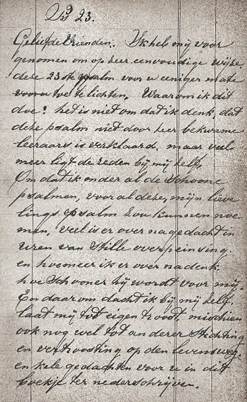 Ps 23.
Geliefde Vrienden. Ik heb mij voor
genomen om op zeer eenvoudige wijze,
deze 23ste psalm voor u eeniger mate
toe te lichten, Waarom ik dit
doe? het is niet omdat ik denk, dat
deze psalm niet door zeer bekwame
leeraars is verklaard, maar veel
meer ligt de reden bij mij zelf,
Omdat ik onder al de schoone
psalmen, voor al deze, mijn lieve
lings psalm zou kunnen noe
men, veel is er over nagedacht in
uren van stille overpeinsing.
en hoe meer ik er over nadenk
hoe schooner hij wordt voor mij.
En daarom dacht ik bij mij zelf,
laat mij tot eigen troost, misschien
ook nog wel tot anderer stichting
en vertroosting op den levensweg,
enkele gedachten voor u in dit
boekje ter nederschrijven.